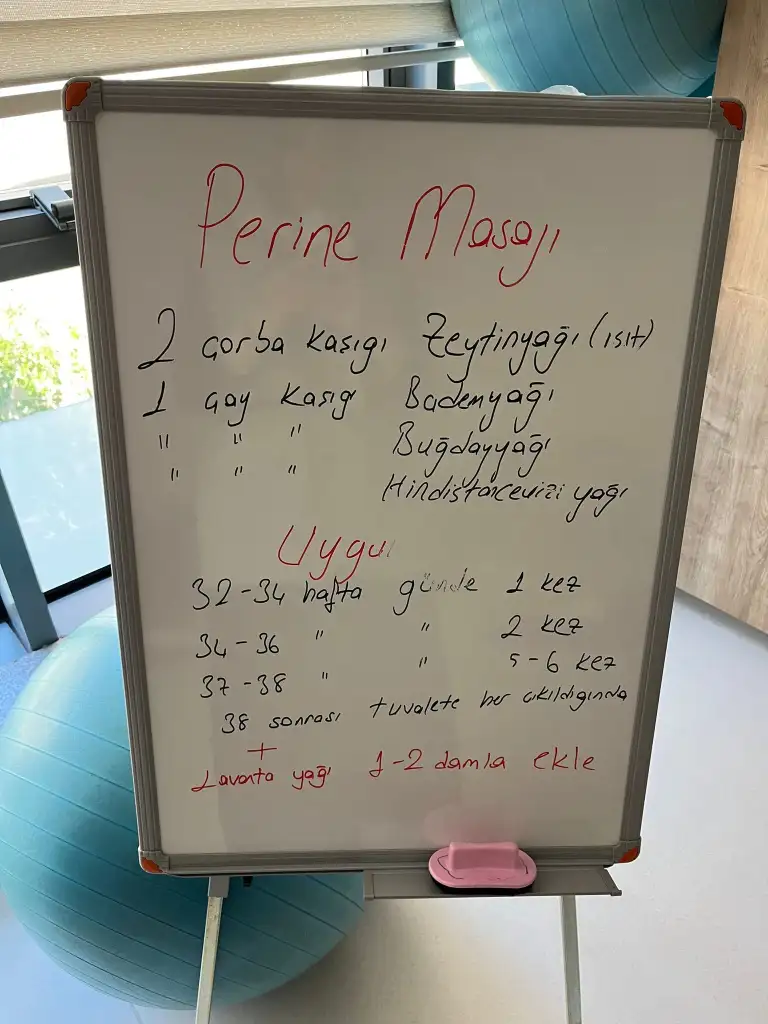 Perine Masajı
2 çorba kaşıgı Zeytinyağı (ısıt)
1 çay kaşıgı Bademyağı
" " " Buğdayyağı
" " " Hindistancevizi yağı
Uygu
32-34 hafta günde 1 kez
34-36 " " 2 kez
37-38 " " 5-6 kez
38 sonrası tuvalete her çıkıldıgında
+
Lavanta yağı 1-2 damla ekle